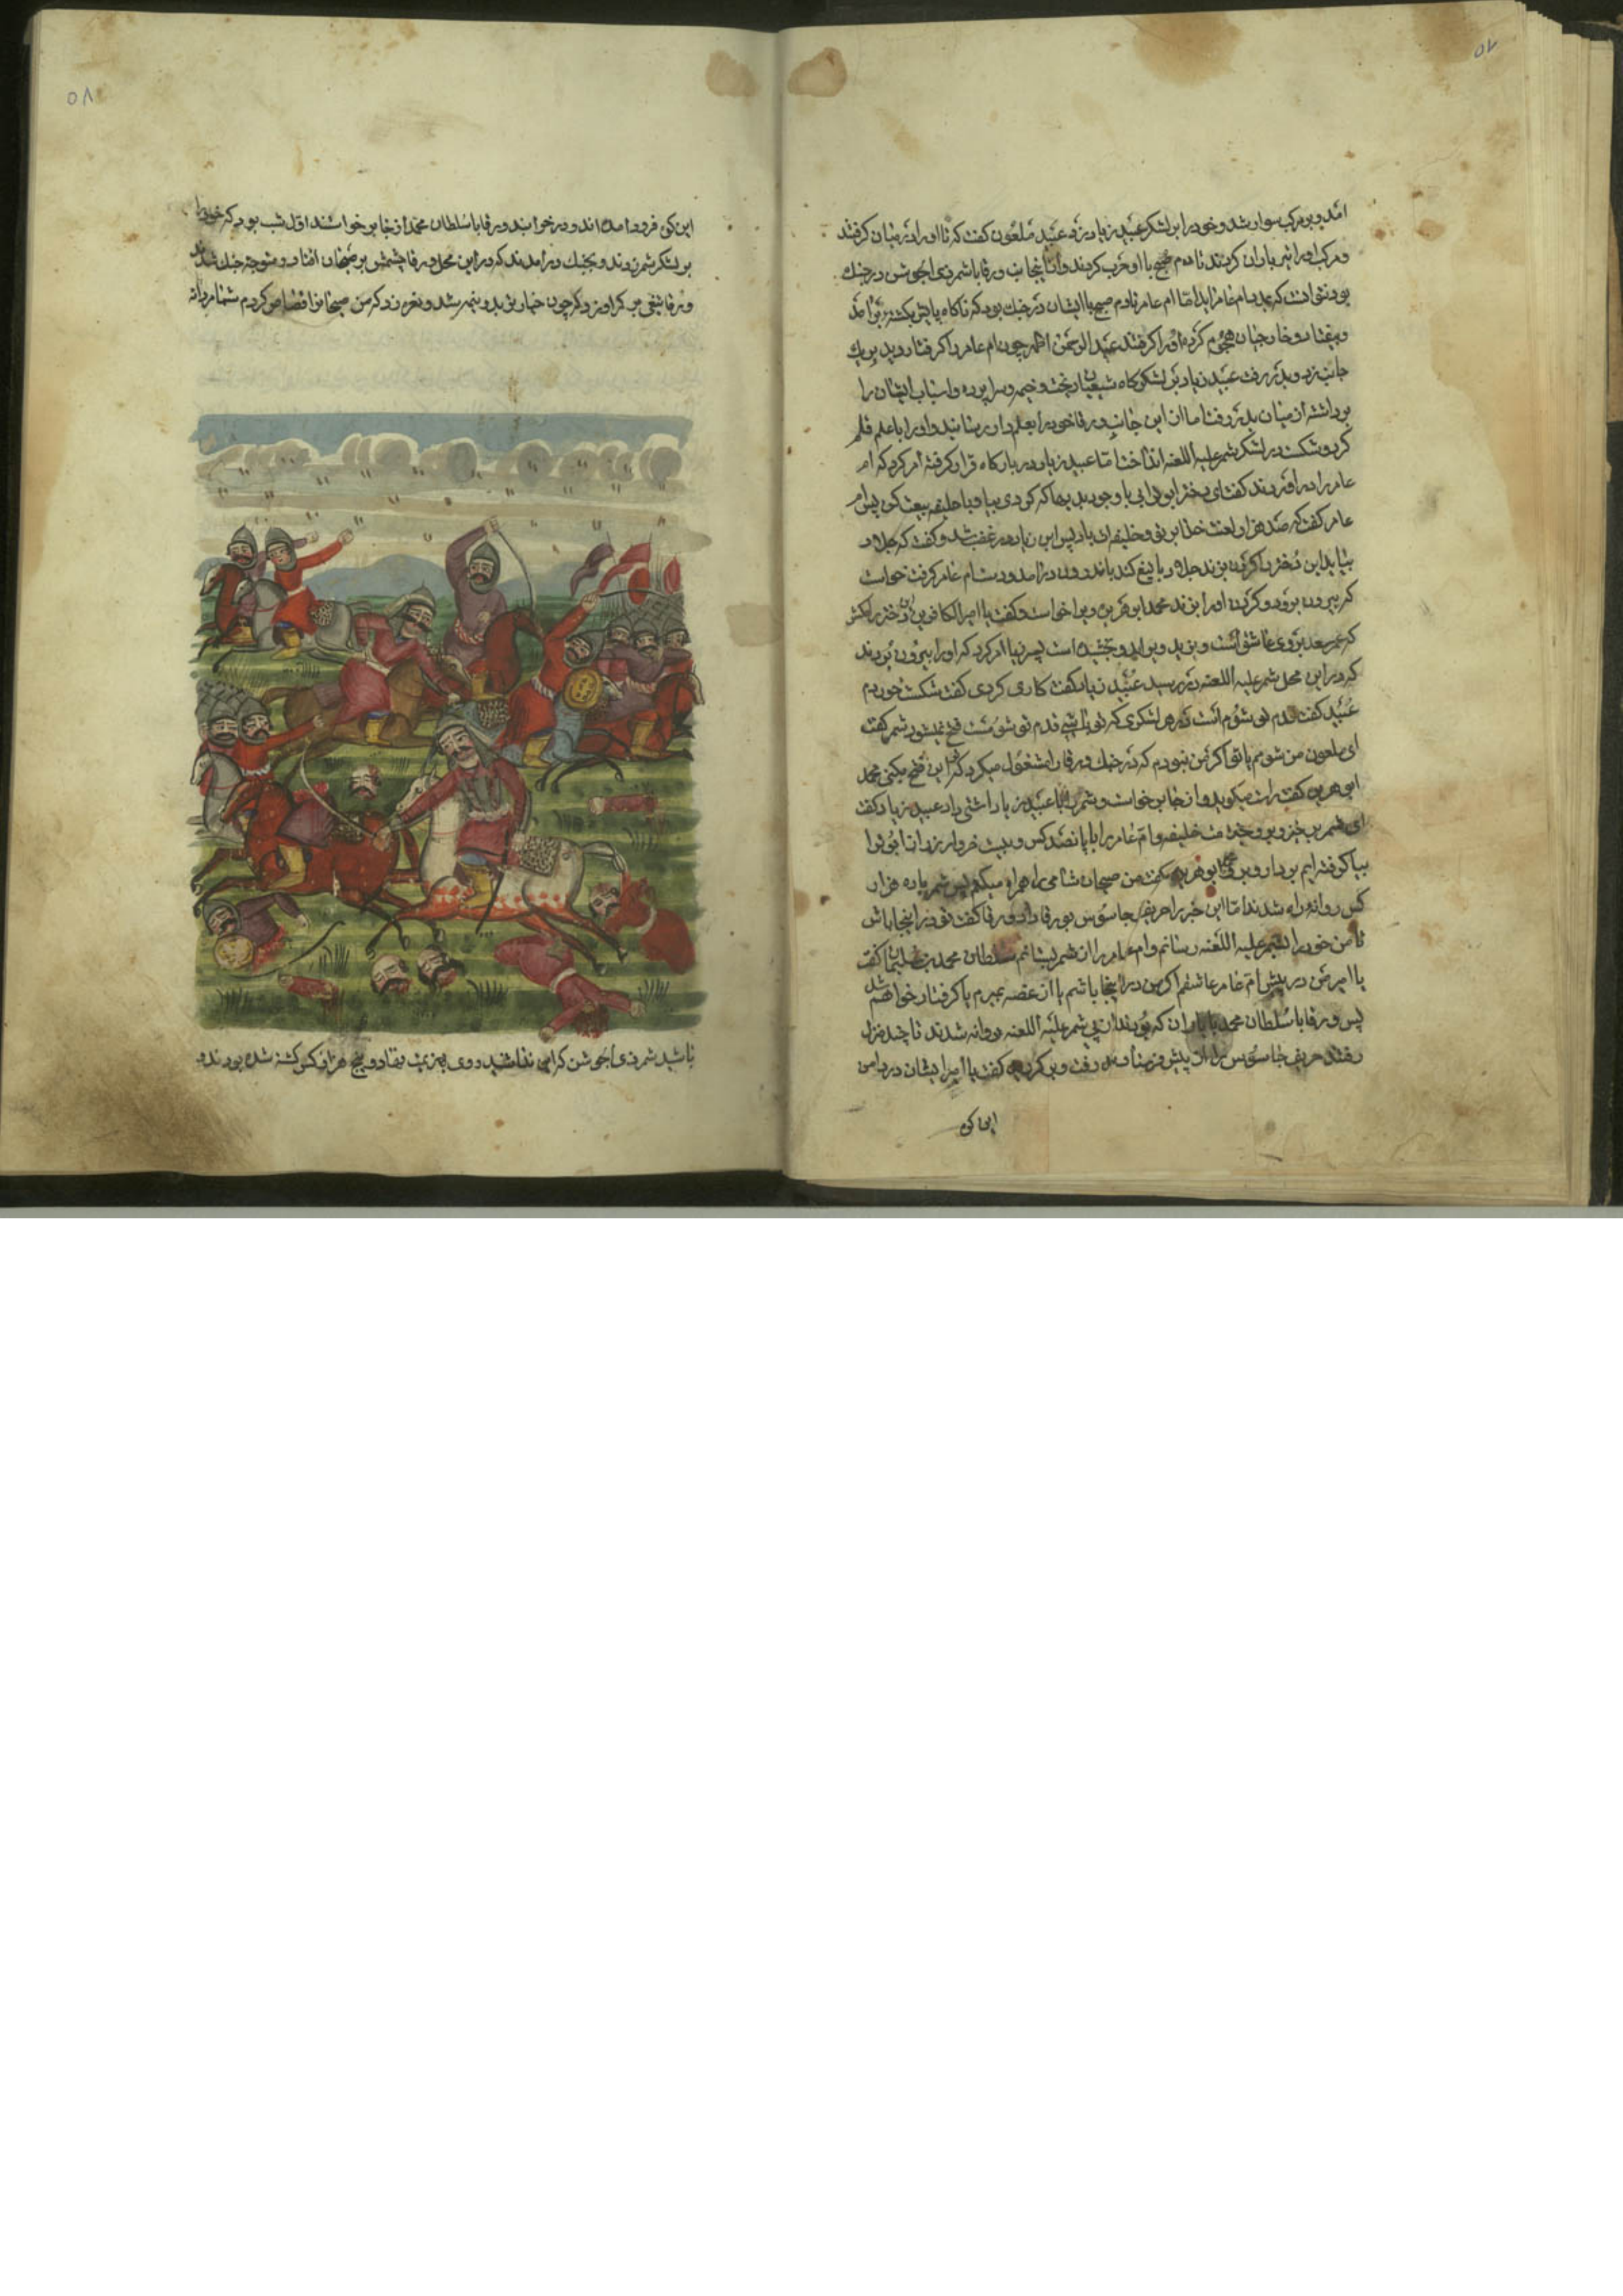 ۵۷
امد و بر مرکب سوار شد و خود را بر لشکر عبید زیاد زد عبید ملعون گفت که تا او را در میان گرفتند
و مرکب او را تیر باران کردند تا دم صبح با او حرب کردند و از اینجانب ورقا با شمر ذی الجوشن در جنك
بود نتوانست که بمدد ام عامر اید اما ام عامر تا دم صبح با ایشان در جنك بود که ناکاه پایش بکشته بر امد
و بیفتاد و خارجیان هجوم کرده او را کرفتند عبد الرحمن چون ام عامر را کرفتار دید بیك
جانب زد و بدر رفت عبید زیاد بر لشکرکاه شیعیان ریخت و خیمه و سراپرده و اسباب ایشان را
برداشته از میان بدر رفت اما از این جانب ورقا خود را بعلمدار رسانید و او را با علم قلم
کرد و شکست در لشکر شمر علیه اللعنه انداخت اما عبید زیاد در بارکاه قرار کرفته امر کرد که ام
عامر را در اوردند کفت ای دختر با وجود بیا و با خلیفه بیعت کن پس ام
عامر کفت که صد هزار لعنت خدا بر تو و خلیفه تو باد پس ابن زیاد در غضب شد و کفت که جلاد
بیاید این دختر را کردن بزند جلاد با تیغ کند باندرون در امد و دست ام عامر کرفت خواست
که بیرون برود و کردن او را بزند محمد ابوهریره بر پا خواست و کفت یا امیر این دختر را مکش
که عمر سعد بر وی عاشق است و یزید ویرا بدو بخشیده است پسر زیاد امر کرد که او را بیرون بردند
که در این محل شمر علیه اللعنه در رسید عبید زیاد کفت کاری کردی کفت شکست خوردم
عبید کفت قدم تو شوم است در هر لشکری که تو باشی قدم تو شومست فتح نمیشود شمر کفت
ای ملعون من شومم یا تو اکر من نبودم که در جنك ورقا را مشغول میکرد که این فتح میکنی محمد
ابوهریره کفت راست میکوید و از جا بر خواست و شمر را با عبید زیاد اشتی داد عبید زیاد کفت
ای شمر بر خیز و برو خدمت خلیفه و ام عامر را با پانصد کس و بیست خروار زر
بیا کرفته ایم بردار و برو ابوهریره کفت من شامی را همراه میکنم پس شمر با ده هزار
کس روانه راه شدند اما این خبر را حریف جاسوس بورقا داد ورقا کفت تو در اینجا باش
تا من خود را بشمر علیه اللعنه رسانم و ام عامر را از شمر بستانم سلطان محمد بن سلیمان کفت
یا امیر من در پیش ام عامر عاشقم اکر من در اینجا باشم یا از غصه بمیرم یا کرفتار خواهم شد
پس ورقا با سلطان محمد با یاران که بودند از پی شمر علیه اللعنه روانه شدند تا چند منزل
رفتند حریف جاسوس را از پیش فرستاد رفت و بر کردید کفت یا امیر ایشان در دامن
این کوه
۵۸
این کوه فرود امده اند و در خوابند ورقا با سلطان محمد از جا بر خواستند اول شب بود که خود را
بر لشکر شمر زدند و بجنك در امدند که در این محل ورقا چشمش بر صبحان افتاد و متوجه جنك شدند
ورقا تیغی بر کمر او زد که چون خیار تر بدو نیم شد و نعره زد که من صبحانرا قصاص کردم شما مردانه
باشید شمر ذی الجوشن نداشید روی بهزیمت نهاد و پنج هزار کس کشته شده بودند و